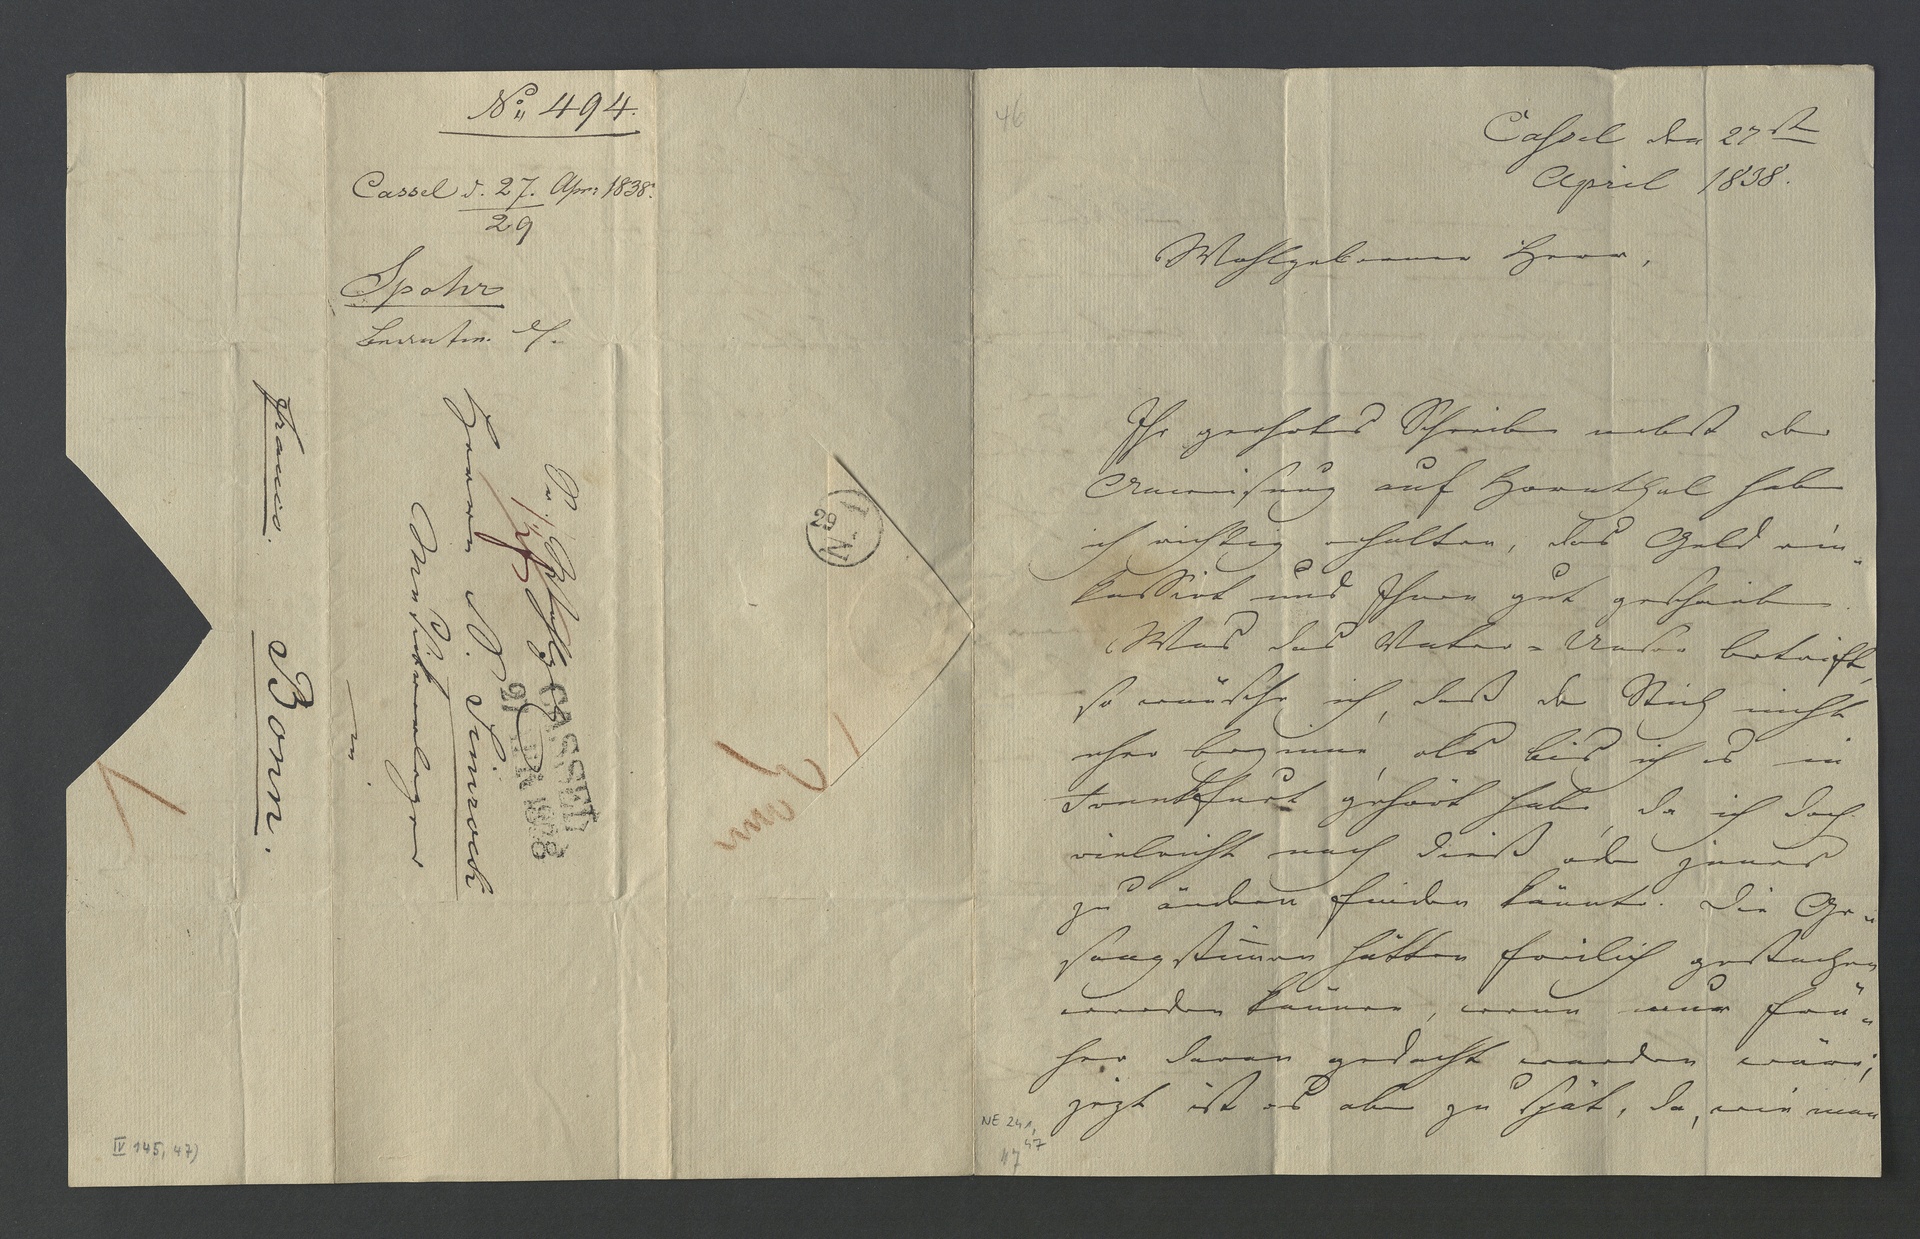 No. 494.
Cassel d. 27. Apr: 1838.
29
Spohr
Sr. Wohlg
Herrn N. Simrock
Musikverleger
in
Bonn.
franco.
CASSEL
1838
29
N. 1
IV 145, 47)
46
Cassel den 27st
April 1838.
Wohlgeborner Herr,
Ihr geehrtes Schreiben nebst der
Anweisung auf Hornthal habe
ich richtig erhalten, das Geld ein-
kassirt und Ihnen gut geschrieben.
Was das Vater-Unser betrifft,
so wünsche ich, daß der Stich nicht
eher beginne, als bis ich es in
Frankfurt gehört habe, da ich doch
vielleicht noch dieß oder jenes
zu ändern finden könnte. Die Ge-
sangstimmen hätten freilich gestochen
werden können, wenn nur frü-
her daran gedacht worden wäre;
jezt ist es aber zu spät, da, wie man
NE 241,
47
47